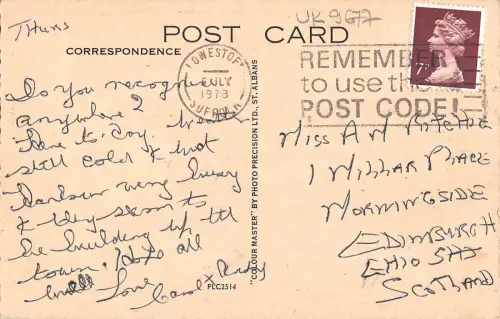 UK 9677
Thurs
POST CARD
CORRESPONDENCE
LOWESTOFT
JULY
1978
SUFFOLK
REMEMBER
to use the
POST CODE!
7P
Do you recognise
anywhere?
Here to-day. Weather
still cold & not
harbour very busy
& they seem to
be building up the
town. Hope all
well Love
Carol x
"COLOUR MASTER" BY PHOTO PRECISION LTD., ST. ALBANS
PLC2514
MISS A N RITCHIE
1 MILLAR PLACE
MORNINGSIDE
EDINBURGH
EH10 5HJ
SCOTLAND